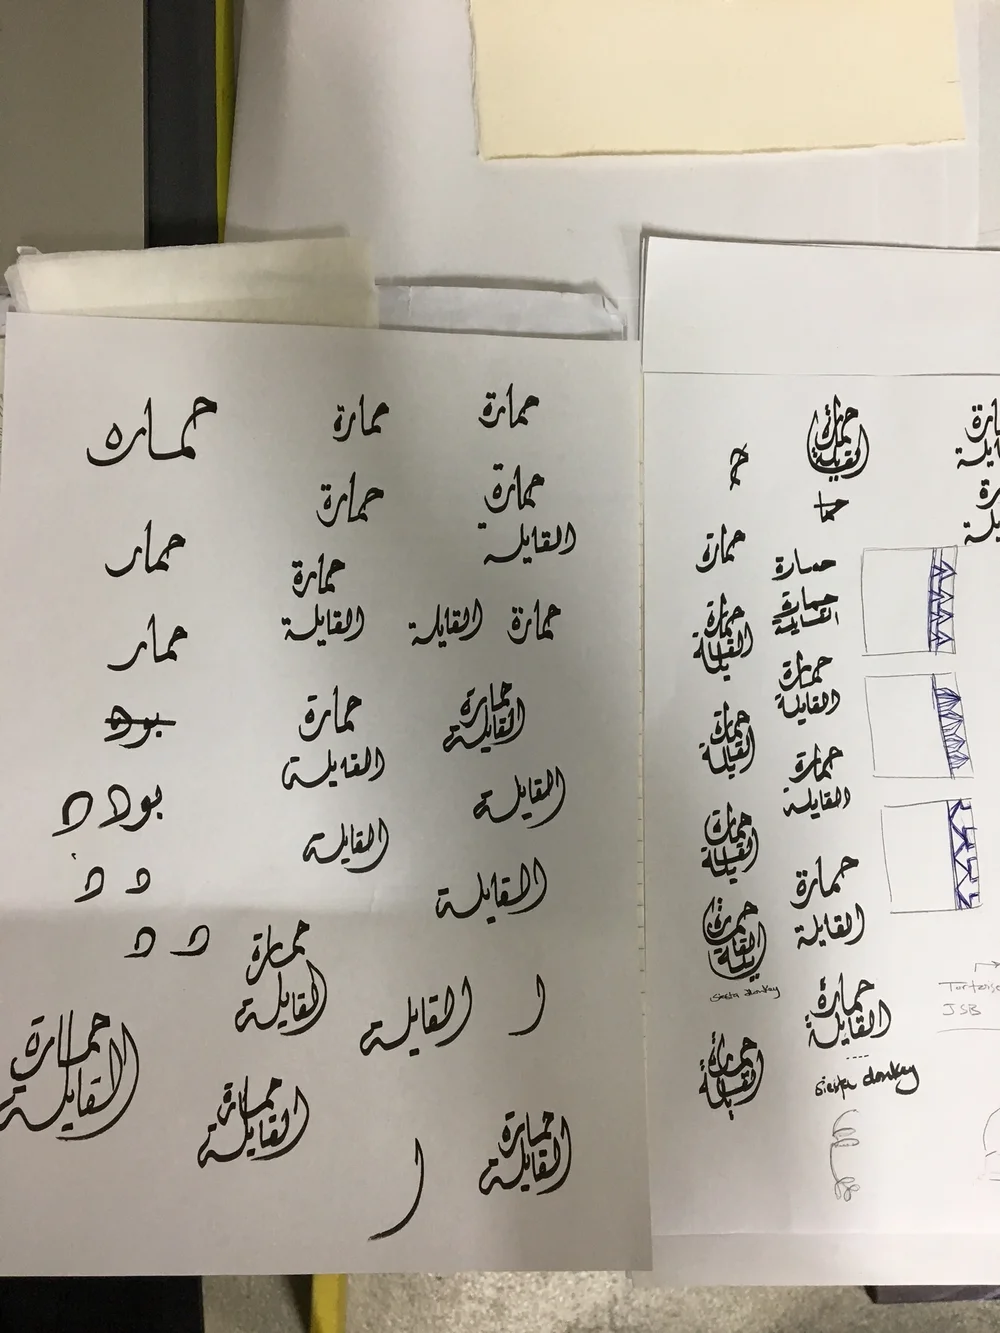 حماره
حمار
حمار
بود
بودد
د د
د د
حمارة
القايلة
حمارة
حمارة
حمارة
القايلة
حمارة
القايلة
القايلة
حمارة
القايلة
حمارة
حمارة
القايلة
حمارة القايلة
حمارة
القايلة
القايلة
القايلة
القايلة
ا
حمارة
القايلة
حمارة
القايلة
ا
حمارة
القايلة
ح
حمارة
حمارة
القايلة
حمارة
القايلة
حمارة
القايلة
حمارة
القايلة
siesta donkey
حمارة
القايلة
حمارة
القايلة
حما
حمارة
حمارة
القايلة
حمارة
القايلة
حمارة
القايلة
حمارة
القايلة
حمارة
القايلة
siesta donkey
Tortoise
JSB